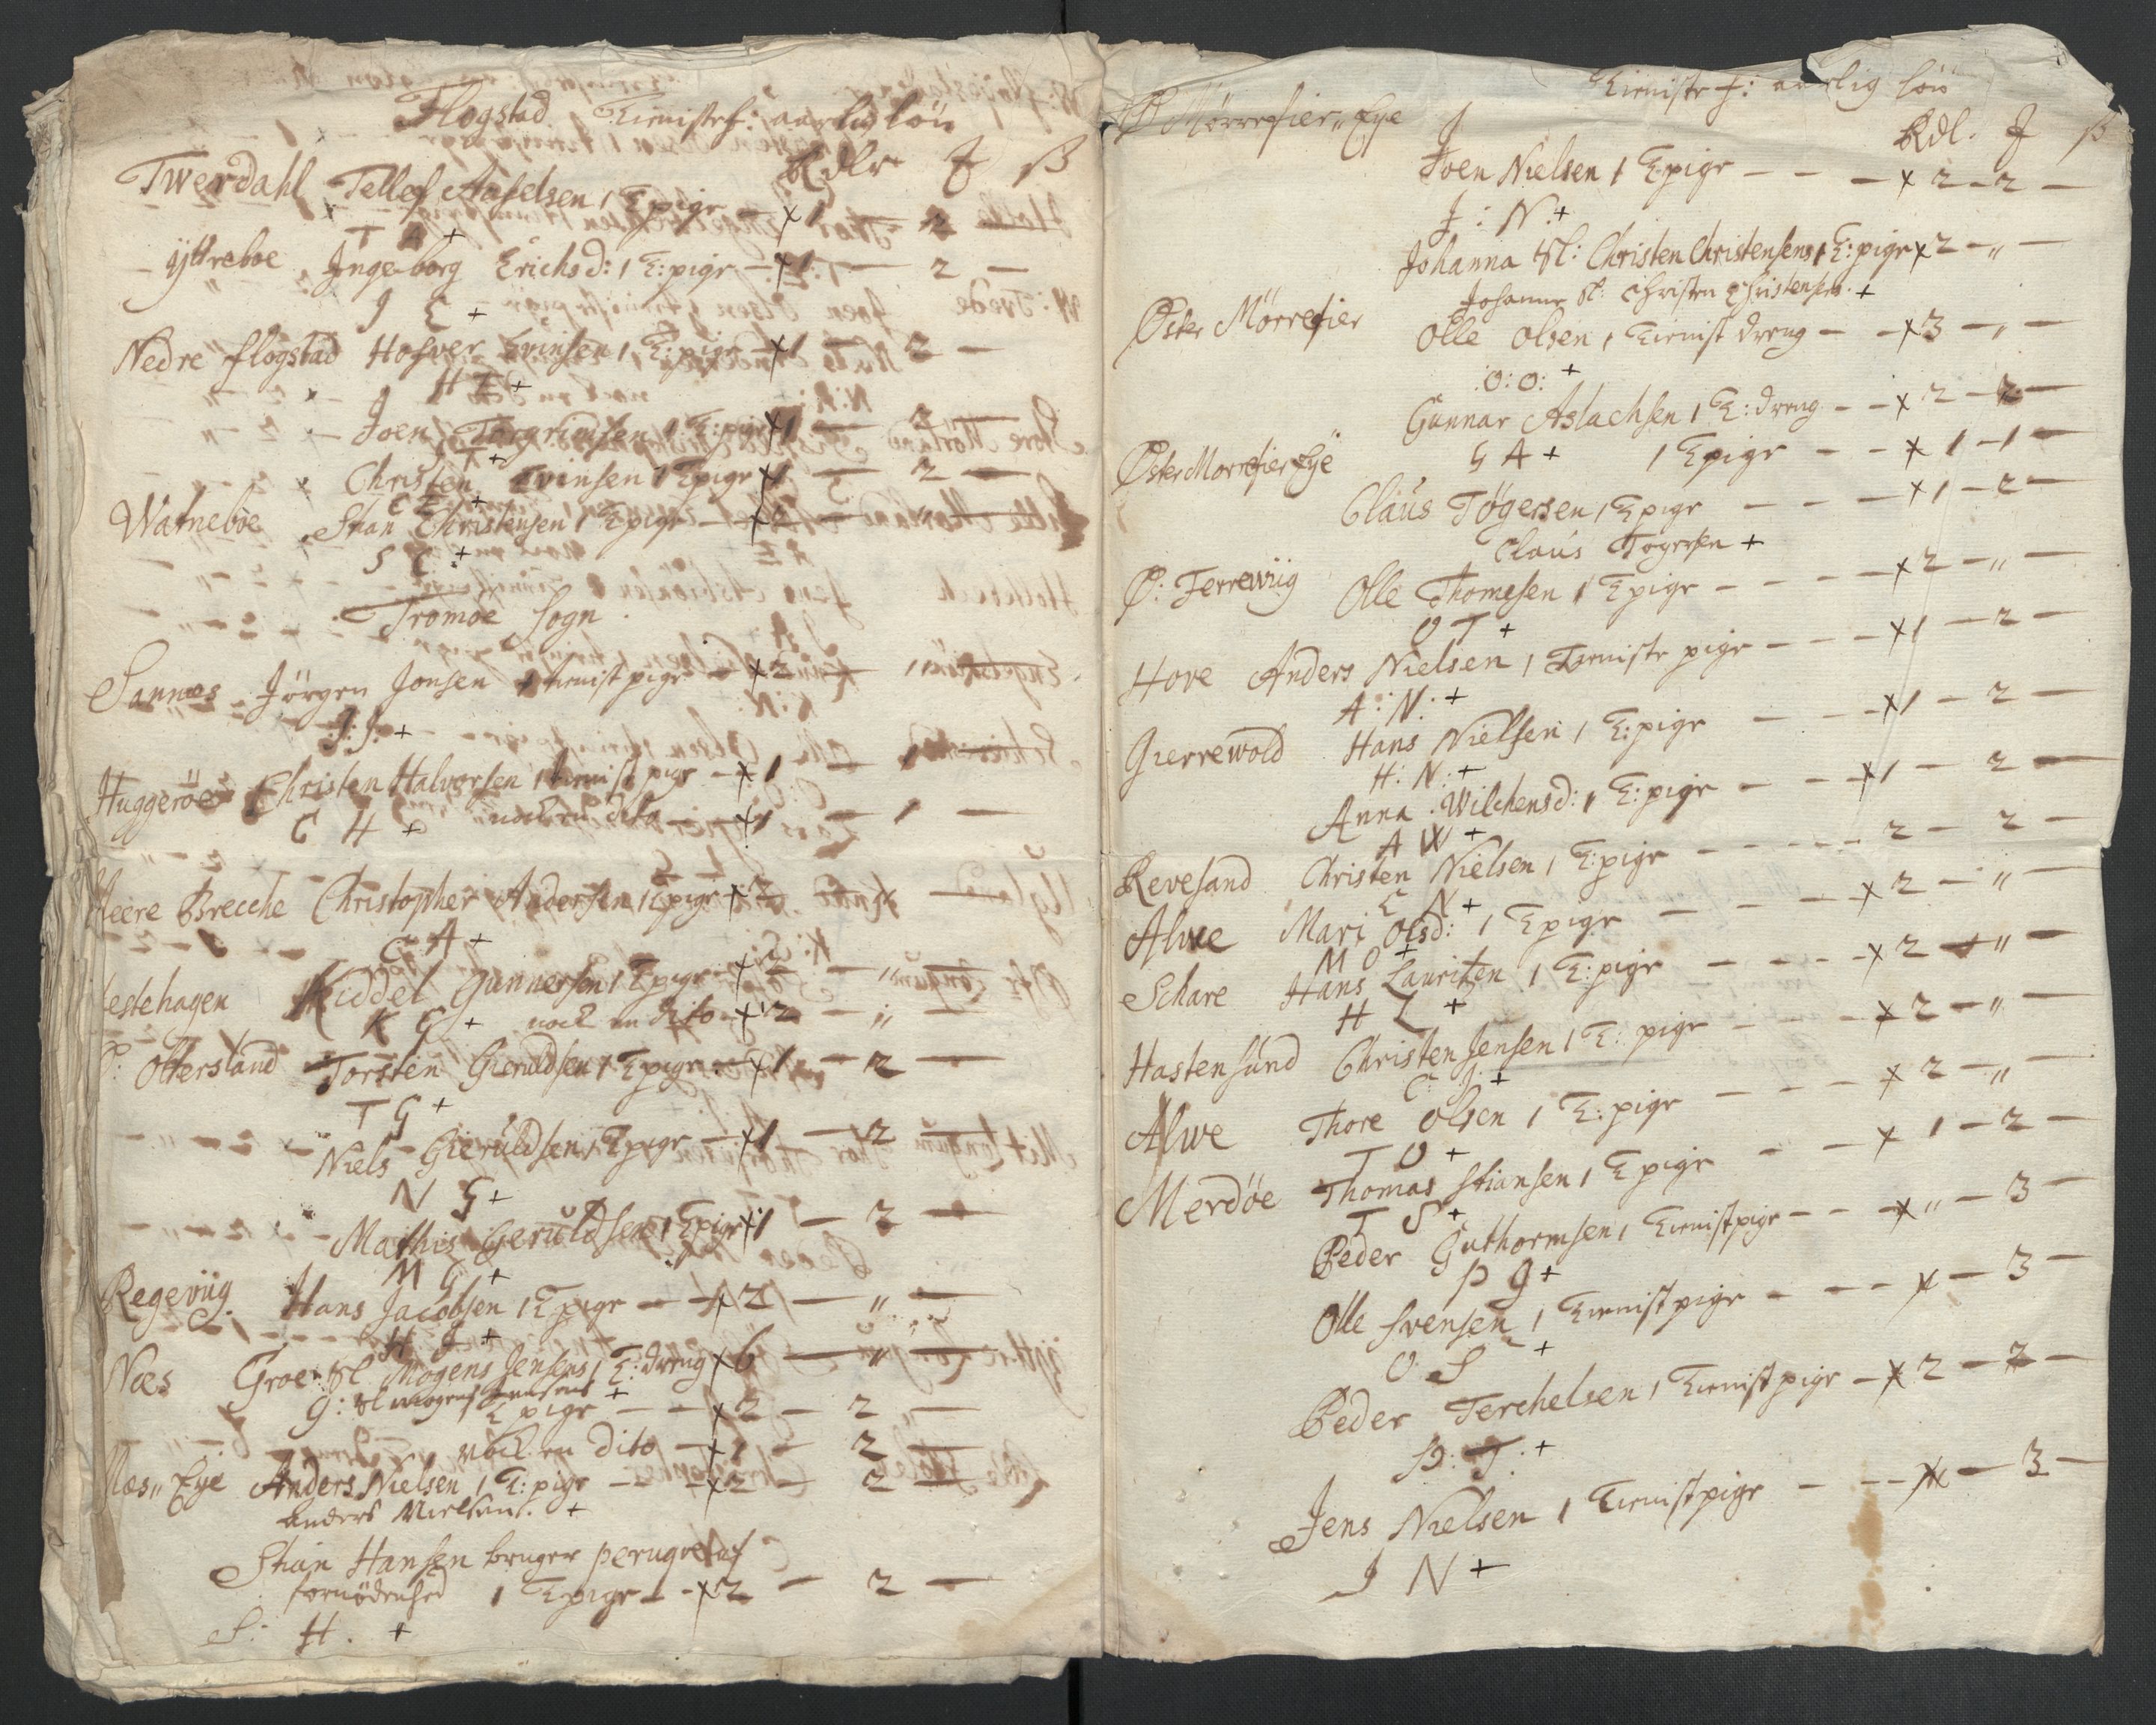 Flogstad Tienistef: aarlig lön
Rdlr ß
Twerdahl Tellef Axselsen 1 T:pige - x 1 - 2 -
T A +
Yttreboe Ingeborg Erichsd: 1 T:pige - x 1 - 2 -
I E +
Nedre flogstad Hofver Evinsen 1 T:pige - x 1 - 2 -
H E +
Joen Torgrimsen 1 T:pige x 1 - 2 -
I T +
Christen Evinsen 1 T pige x 1 - 2 -
C E +
Watneboe Stian Christensen 1 T pige - x 2 - „ -
S C +
Tromøe Sogn
Sannes Jörgen Jonsen 1 tienist pige - x 2
J: J: +
Huggeröe Christen Halvorsen 1 tienist pige - x 1
C H + noch en dito - x 1 - 1 -
Heere Brecche Christopher Andersen 1 T pige x 2
C A +
estehagen Kiddel Gunnersen 1 T pige x 2
K G + noch en dito - x 2 - „ -
Ø: Otterstand Torsten Gieruldsen 1 T pige - x 1 - 2 -
T G +
Niels Gieruldsen 1 T pige - x 1 - 2 -
N G +
Mathis Gieruldsen 1 T pige x 1 - 2 -
M G +
Regeviig Hans Jacobsen 1 T pige - x 2 - „ -
H J +
Næs Groe Sl Mogens Jensens 1 T: dreng x 6 - „ -
G: Sl Mogens Jensens +
T pige - - x 2 - 2 -
noch en dito - x 1 - 2 -
Næs„ Eye Anders Nielsen 1 T: pige - - x 2 - 2 -
Anders Nielsen. +
Stian Hansen bruger peruqve af
fornödenhed 1 T pige - - x 2 - 2 -
S: H. +
Tieniste f: aarlig lön
Ø Mörrefier„ Eye
Rdl. ß
Joen Nielsen 1 T pige - - - x 2 - 2 -
J: N: +
Johanna Sl: Christen Christensens 1 T: pige x 2 - „ -
Johanne Sl: Christen Christensens. +
Øster Mörrefier Olle Olsen 1 Tienist dreng - - x 3 - „ -
:O: O: +
Gunnar Aslachsen 1 T: dreng - - x 2 - 2 -
Øster Morrefier Eye G A + 1 T pige - - x 1 - 1 -
Claus Tögersen 1 T pige - - - x 1 - 2 -
Claus Tögersen +
Ø: Terreviig Olle Thomesen 1 T pige - - - - x 2 - „ -
O T +
Hove Anders Nielsen 1 Tieniste pige - - - x 1 - 2 -
A: N: +
Gierrewold Hans Nielsen 1 T: pige - - - x 1 - 2 -
H: N: +
Anna Wilchensd: 1 T: pige - - - x 1 - 2 -
A W +
Revesand Christen Nielsen 1 T: pige - - - - - 2 - 2 -
C N +
Alwe Mari Olsd: 1 T pige - - - - x 2 - „ -
M O +
Schare Hans Lauritzen 1 T: pige - - - - x 2 - „ -
H L +
Hastensund Christen Jensen 1 T: pige - - - - x 2 - „ -
C J +
Alwe Thore Olsen 1 T: pige - - - - x 2 - „ -
T O +
Merdöe Thomas Stiansen 1 T pige - - x 1 - 2 -
T S +
Peder Guthormsen 1 Tienist pige - - x „ - 3 -
P G +
Olle Svensen 1 Tienist pige - - - x - 3 -
O S +
Peder Terchelsen 1 Tienist pige - x 2 - 2 -
P: T: +
Jens Nielsen 1 Tienist pige - - - x - 3 -
J N +